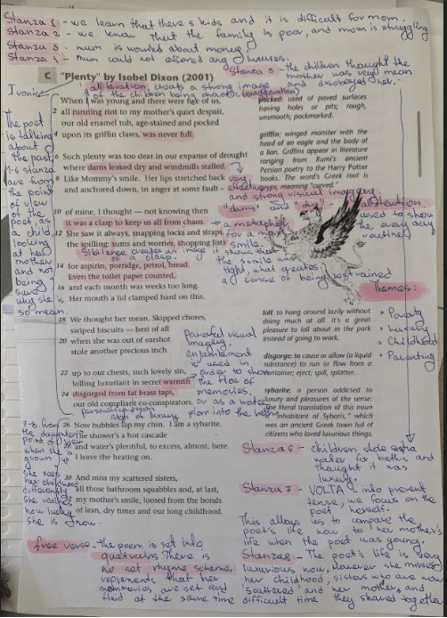 Stanza 1 - we learn that there's kids and it is difficult for mom.
Stanza 2 - we know that the family is poor, and mom is struggling
Stanza 3 - mum is worried about money
Stanza 4 - mum could not afford any luxuries.
Stanza 5 - the children thought the
mother was very mean
and disobeyed her.
C "Plenty" by Isobel Dixon (2001)
alliteration, creates a strong image
of the children being
Ironic
When I was young and there were five of us,
2 all running riot to my mother's quiet despair,
our old enamel tub, age-stained and pocked
4 upon its griffin claws, was never full.
Such plenty was too dear in our expanse of drought
6 where dams leaked dry and windmills stalled.
Like Mommy's smile. Her lips stretched back
8 and anchored down, in anger at some fault –
10 of mine, I thought – not knowing then
it was a clasp to keep us all from chaos.
12 She saw it always, snapping locks and straps,
the spilling: sums and worries, shopping lists
14 for aspirin, porridge, petrol, bread.
Even the toilet paper counted,
16 and each month was weeks too long.
Her mouth a lid clamped hard on this.
18 We thought her mean. Skipped chores,
swiped biscuits – best of all
20 when she was out of earshot
stole another precious inch
22 up to our chests, such lovely sin,
lolling luxuriant in secret warmth
24 disgorged from fat brass taps,
our old compliant co-conspirators.
26 Now bubbles lap my chin. I am a sybarite.
The shower's a hot cascade
28 and water's plentiful, to excess, almost, here.
I leave the heating on.
30 And miss my scattered sisters,
all those bathroom squabbles and, at last,
32 my mother's smile, loosed from the bonds
of lean, dry times and our long childhood.
pocked: used of paved surfaces
having holes or pits; rough,
unsmooth; pockmarked.
griffin: winged monster with the
head of an eagle and the body of
a lion. Griffins appear in literature
ranging from Rumi's ancient
Persian poetry to the Harry Potter
books. The word's Greek root is
meaning "curved."
loll: to hang around lazily without
doing much at all. It's a great
pleasure to loll about in the park
instead of going to work.
disgorge: to cause or allow (a liquid
substance) to run or flow from a
container; eject; spill, splatter.
sybarite: a person addicted to
luxury and pleasures of the sense:
The literal translation of this noun
"inhabitant of Sybaris," which
was an ancient Greek town full of
citizens who loved luxurious things.
The poet
is talking
about
the past,
are from
the point
of view
of the
poet as
a child,
looking
at her
mother
and not
being
why she is
so mean.
and strong visual imagery
"dams" and "dry" - alliteration
used to show
a metaphor
for a mom's
smile.
a sense of being restrained
Themes:
• Poverty
• Luxury
• Childhood
• Parenting
Powerful visual
imagery.
enjambement
is used in
order to show
the flow of
memories,
or as a water
Stanza 6 - children
thought it was
luxury.
Stanza 7 - VOLTA - into present
tense, we focus on the
poet herself.
This allows us to compare the
poet's life now to her mother's
life when the poet was young.
Stanza 8 - The poet's life is very
luxurious now, however she misses
her childhood, sisters who are now
'scattered' and her mother, and
difficult time they shared together
free verse - the poem is set into
quatrains. There is
no set rhyme scheme,
represents that her
memories are set and
fluid at the same time